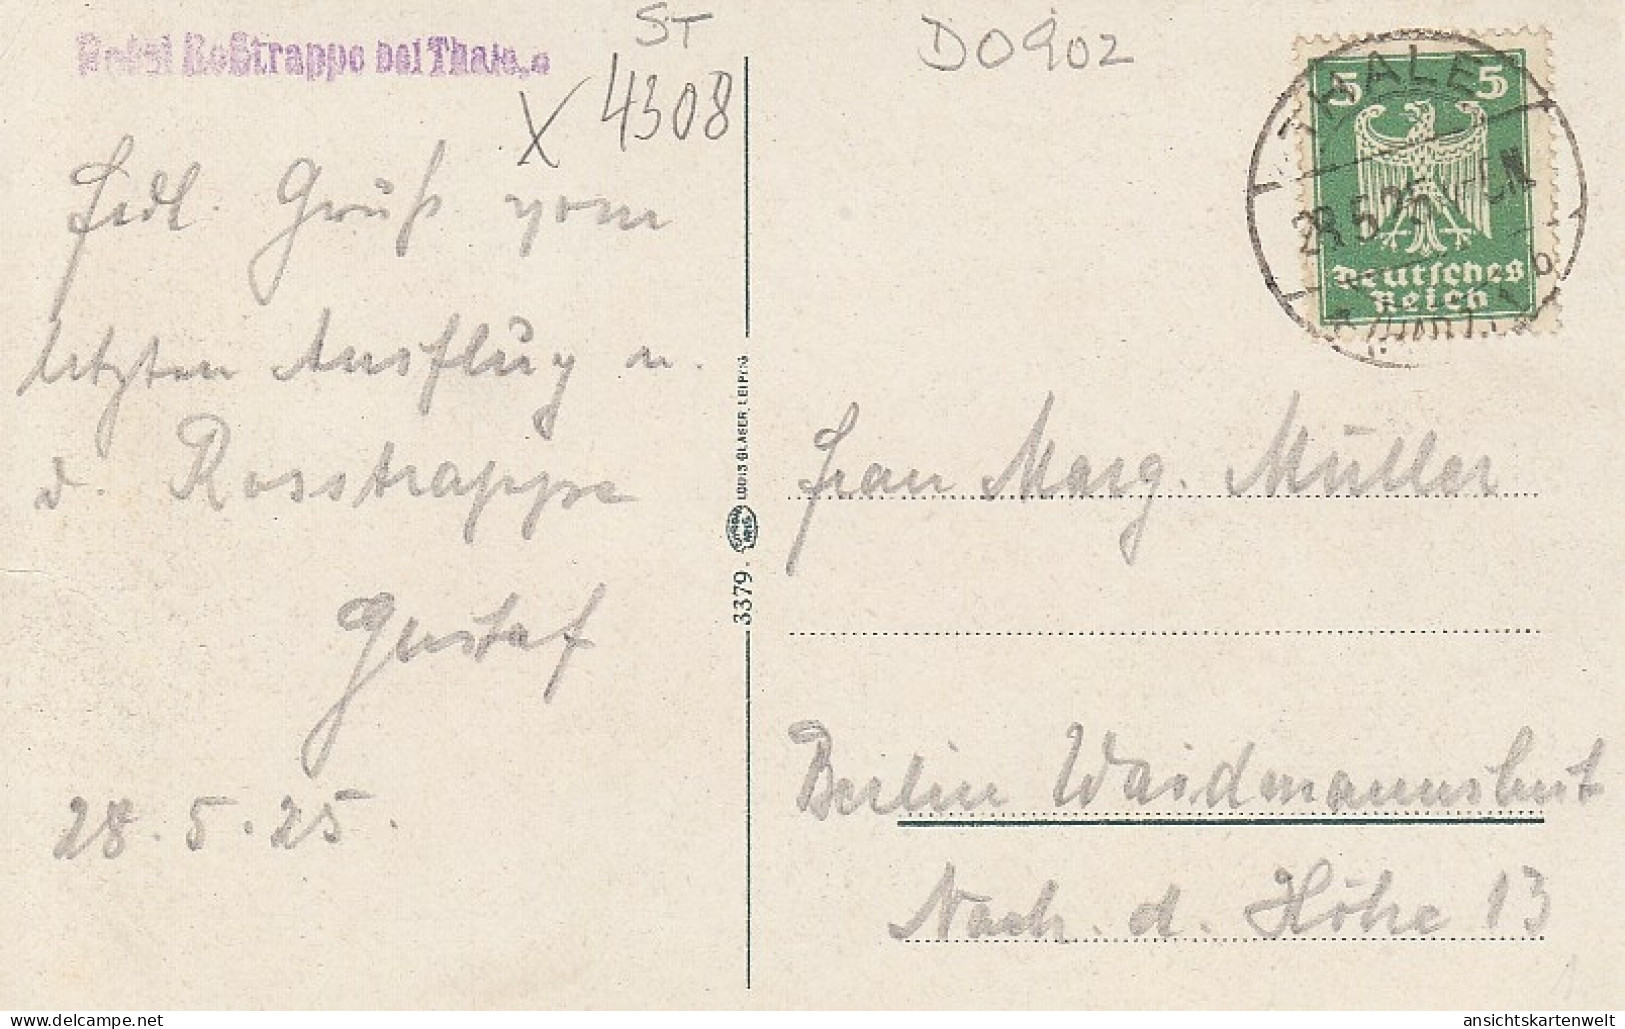 Hotel Roßtrappe bei Thale
ST
X 4308
DO902
5 5
THALE
28.5.25
Deutsches
Reich
(HARZ)
Frdl. Gruß vom
letzten Ausflug u.
d. Rosstrappe
Gustaf
28.5.25.
3379.
LOUIS GLASER, LEIPZIG
Frau Marg. Müller
Berlin Waidmannslust
Nach d. Höhe 13
hobbyphilatelie.delcampe.net
ansichtskartenwelt